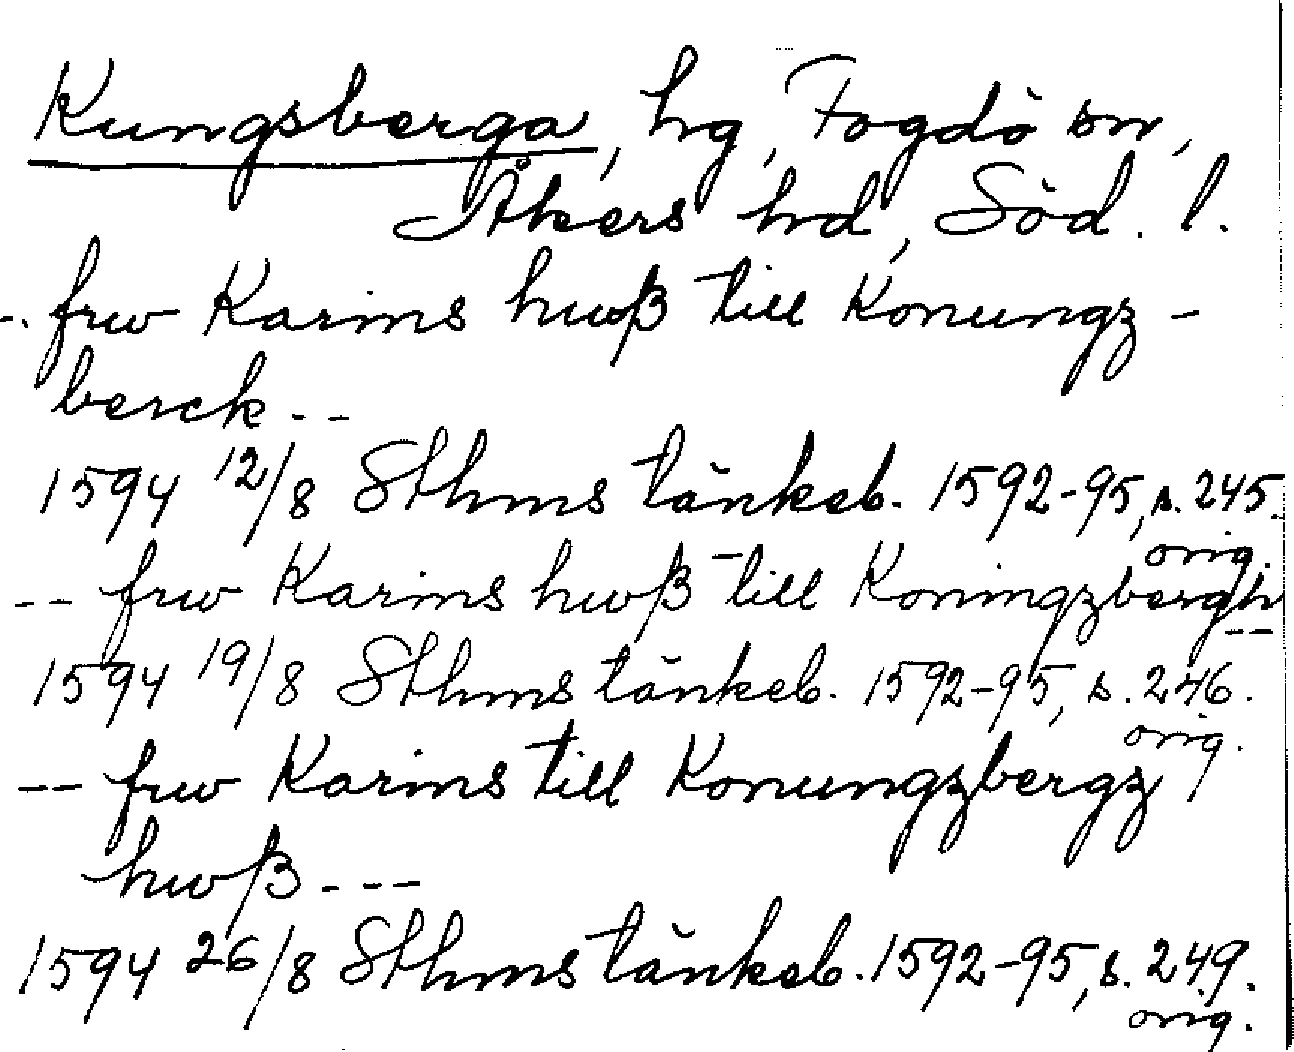 Kungsberga, hg, Fogdö sn,
Åkers hd, Söd. l.
-. frw Karins hwß till Konungz-
berck - -
1594 12/8 Sthms tänkeb. 1592-95, s. 245.
orig.
-- frw Karins hwß till Koningzbergh
--
1594 19/8 Sthms tänkeb. 1592-95, s. 246.
orig.
-- frw Karins till Konungzbergz
hwß - - -
1594 26/8 Sthms tänkeb. 1592-95, s. 249.
orig.